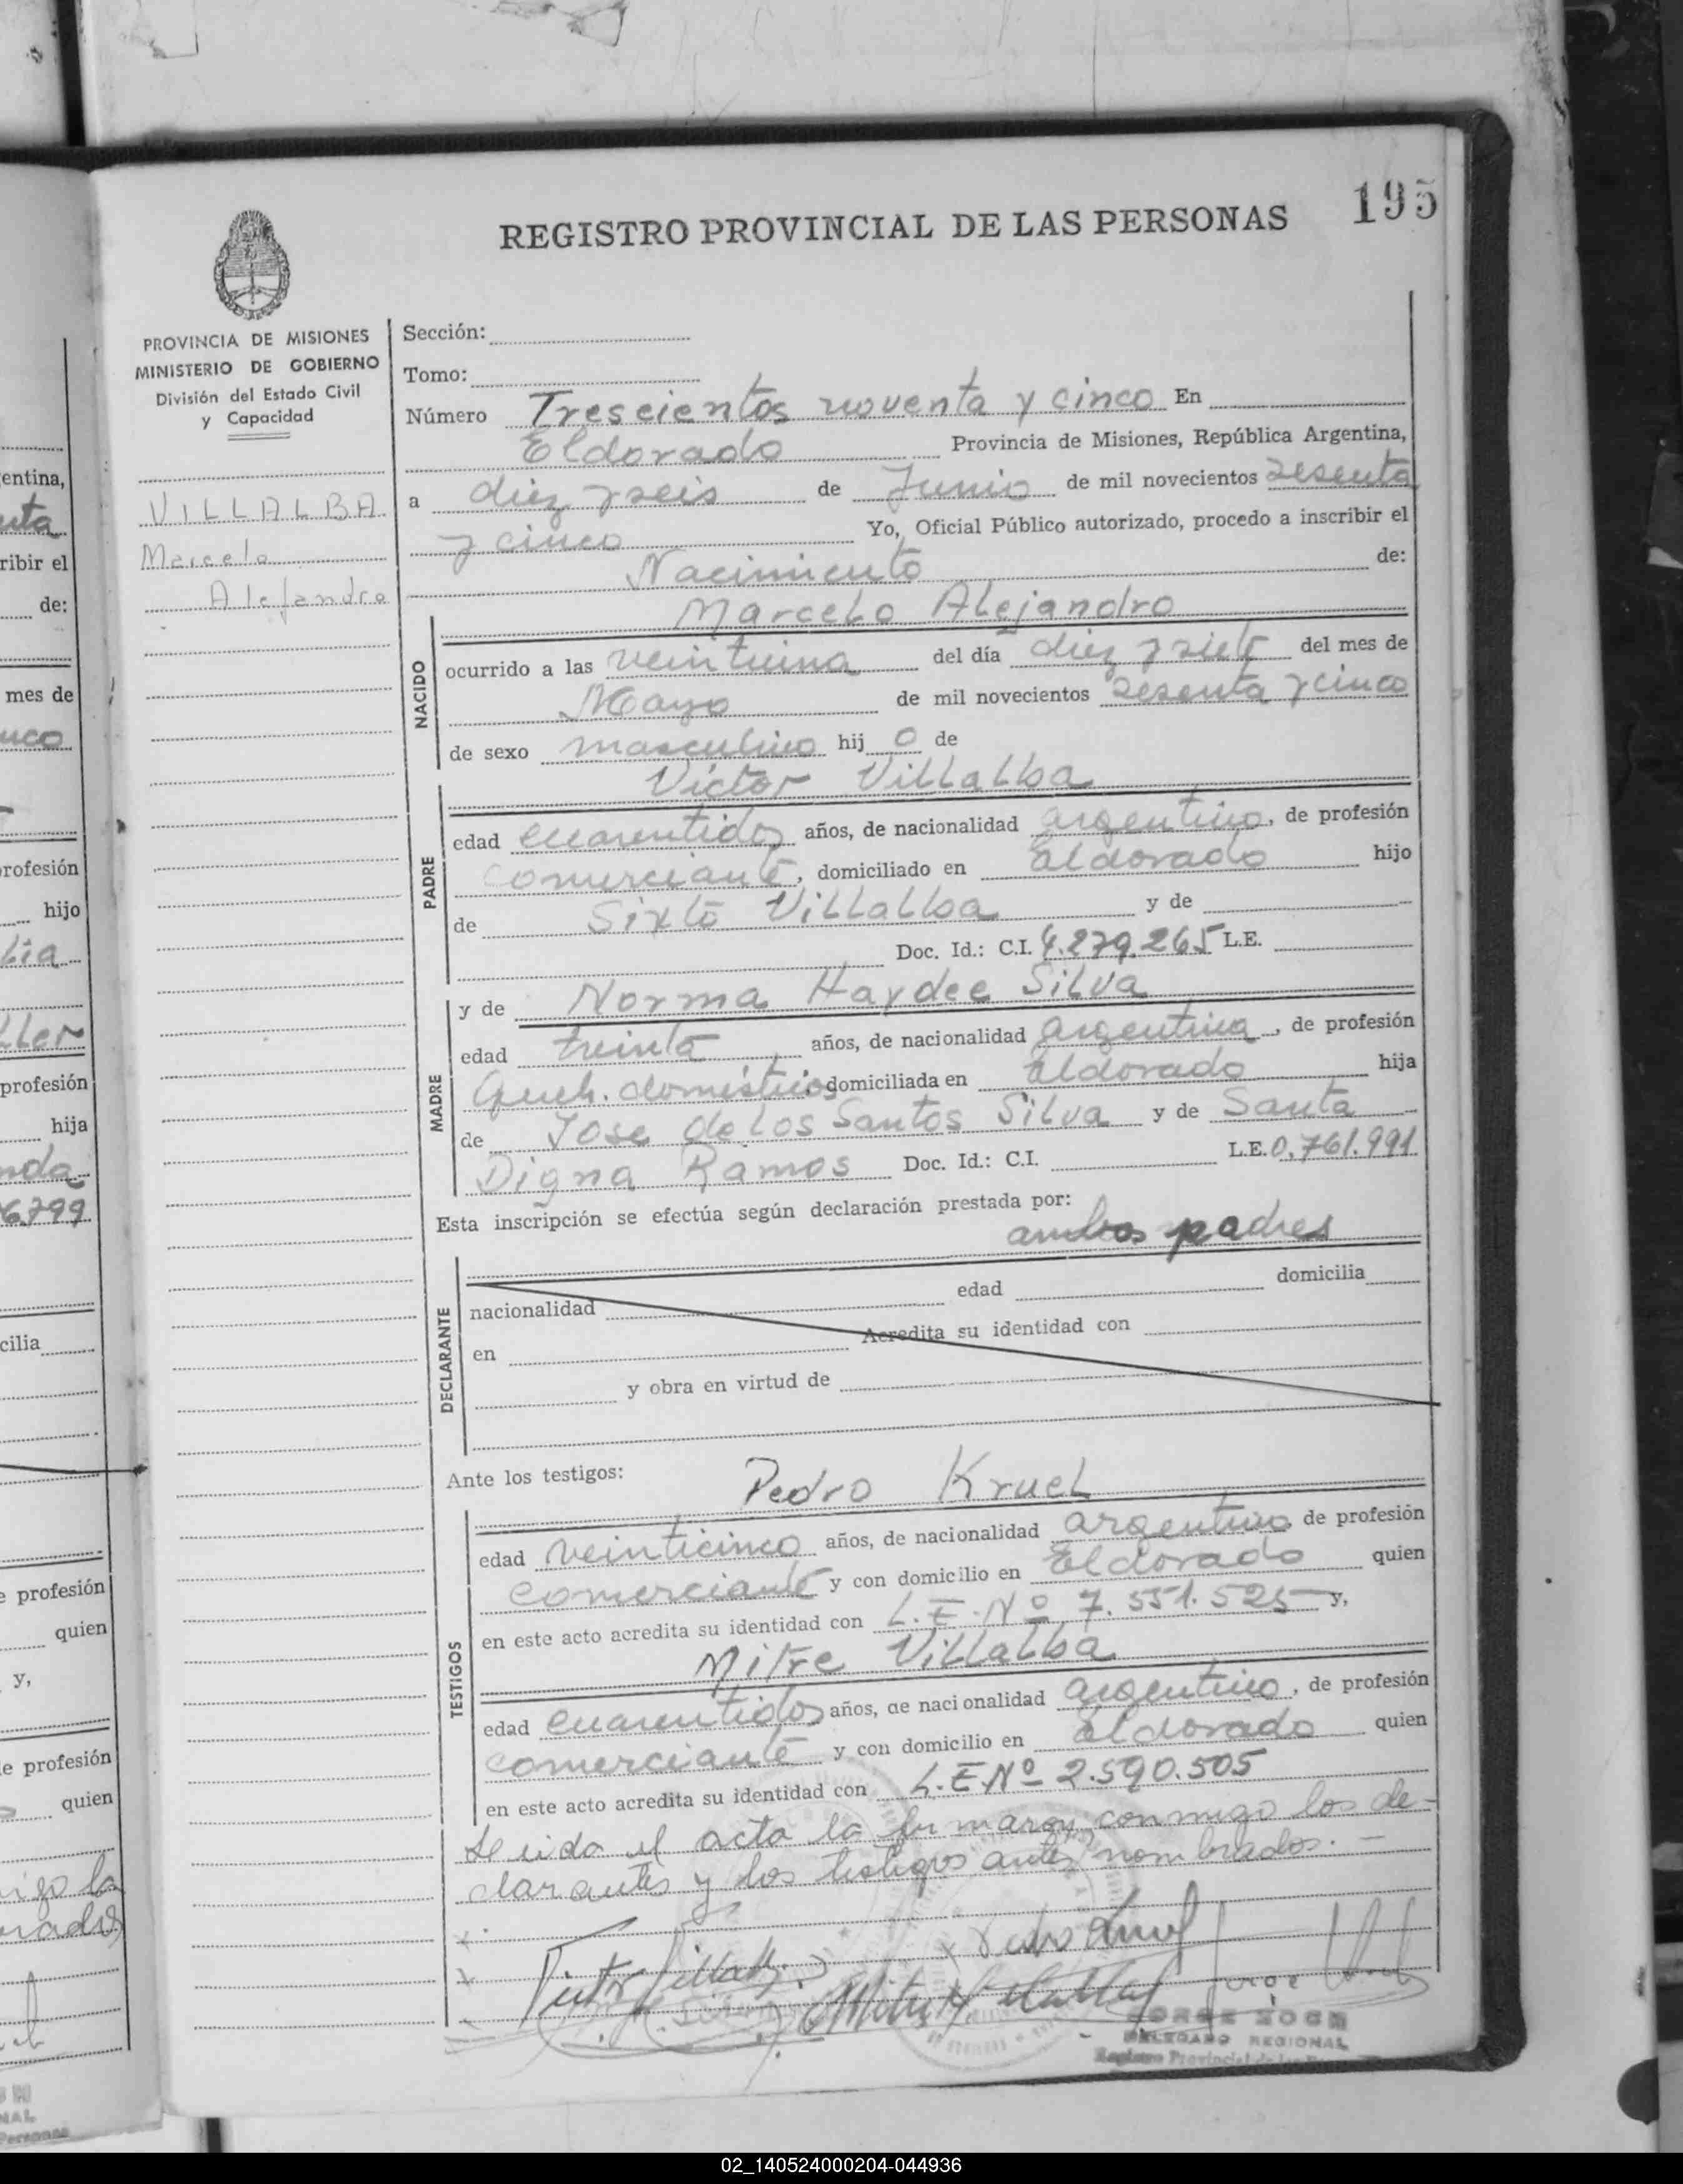 195
REGISTRO PROVINCIAL DE LAS PERSONAS
PROVINCIA DE MISIONES
MINISTERIO DE GOBIERNO
División del Estado Civil
y Capacidad
VILLALBA
Marcelo
Alejandro
Sección:
Tomo:
Número Trescientos noventa y cinco En
Eldorado Provincia de Misiones, República Argentina,
a diez y seis de Junio de mil novecientos sesenta
y cinco Yo, Oficial Público autorizado, procedo a inscribir el
Nacimiento de:
NACIDO
Marcelo Alejandro
ocurrido a las veintiuna del día diez y siete del mes de
Mayo de mil novecientos sesenta y cinco
de sexo masculino hij o de
PADRE
Víctor Villalba
edad cuarentidos años, de nacionalidad argentino, de profesión
comerciante, domiciliado en Eldorado hijo
de Sixto Villalba y de
Doc. Id.: C.I. 4.279.265 L.E.
MADRE
y de Norma Haydee Silva
edad treinta años, de nacionalidad argentina, de profesión
Queh. domésticos domiciliada en Eldorado hija
de Jose de los Santos Silva y de Santa
Digna Ramos Doc. Id.: C.I. L.E. 0.761.991
Esta inscripción se efectúa según declaración prestada por:
ambos padres
DECLARANTE
nacionalidad edad domicilia
en Acredita su identidad con
y obra en virtud de
Ante los testigos: Pedro Kruel
TESTIGOS
edad veinticinco años, de nacionalidad argentino de profesión
comerciante y con domicilio en Eldorado quien
en este acto acredita su identidad con L.E. Nº 7.551.525 y,
Mitre Villalba
edad cuarentidos años, de nacionalidad argentino, de profesión
comerciante y con domicilio en Eldorado quien
en este acto acredita su identidad con L.E Nº 2.590.505
Leida el acta la firmaron conmigo los de-
clarantes y los testigos antes nombrados. —
DELEGADO REGIONAL
Registro Provincial de las
entina,
ribir el
de:
mes de
profesión
hijo
profesión
hija
6799
cilia
e profesión
quien
y,
e profesión
quien
02_140524000204-044936